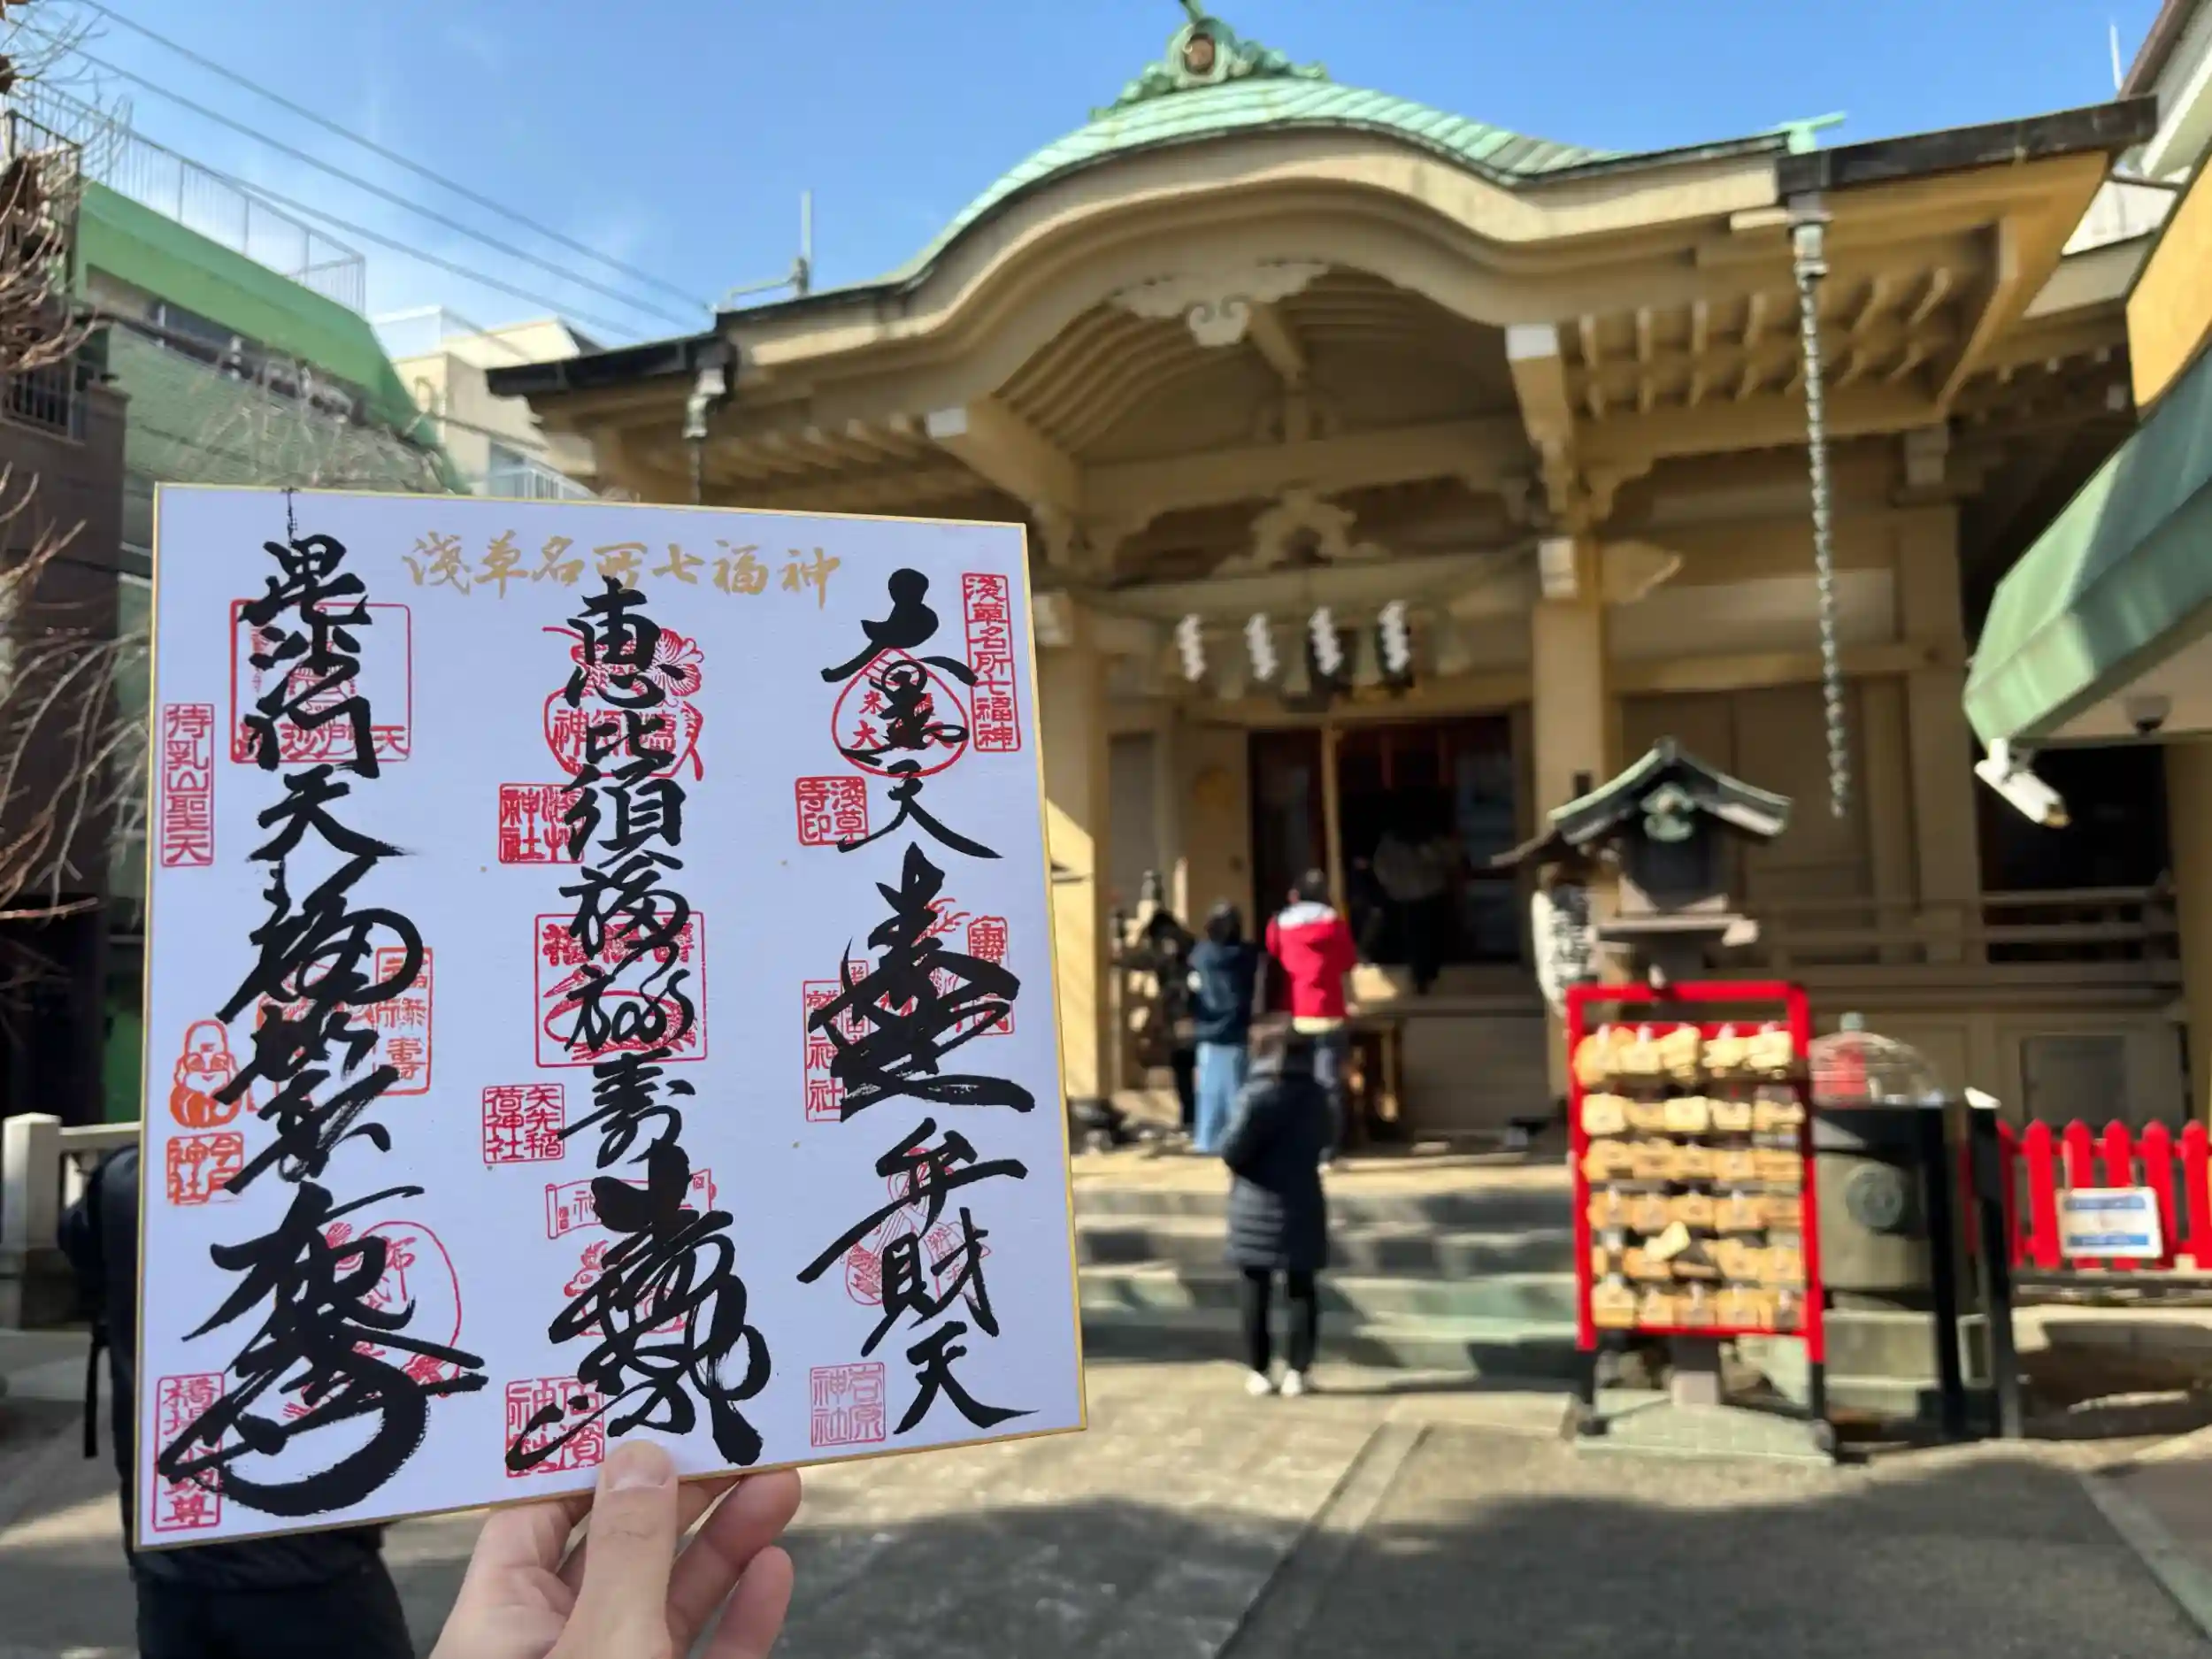 浅草名所七福神
浅草名所七福神
大黒天
浅草
寺印
寿老人
神社
弁財天
吉原
神社
恵比須
浅草
神社
福禄寿
矢先稲
荷神社
寿老神
石濱
神社
毘沙門天
待乳山聖天
福禄寿
今戸
神社
布袋尊
橋場不動尊